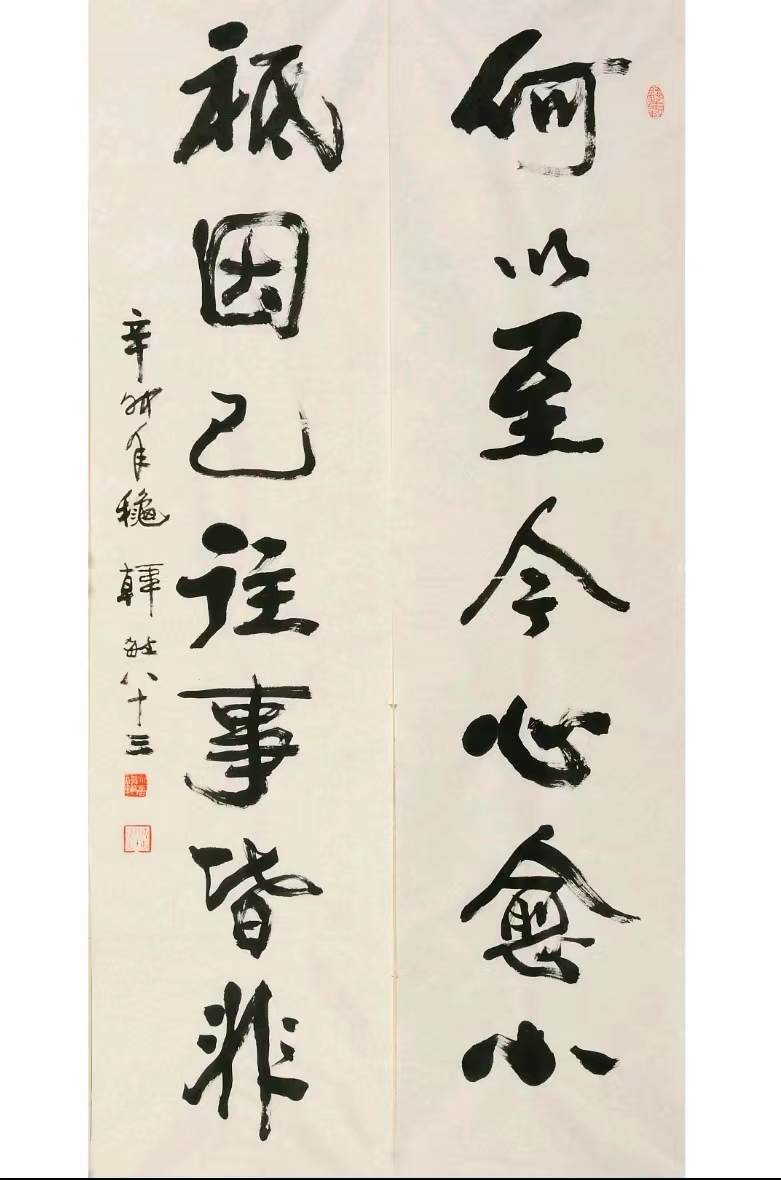 何以至今心愈小
祗因已往事皆非
辛卯年龝 韩敏八十三